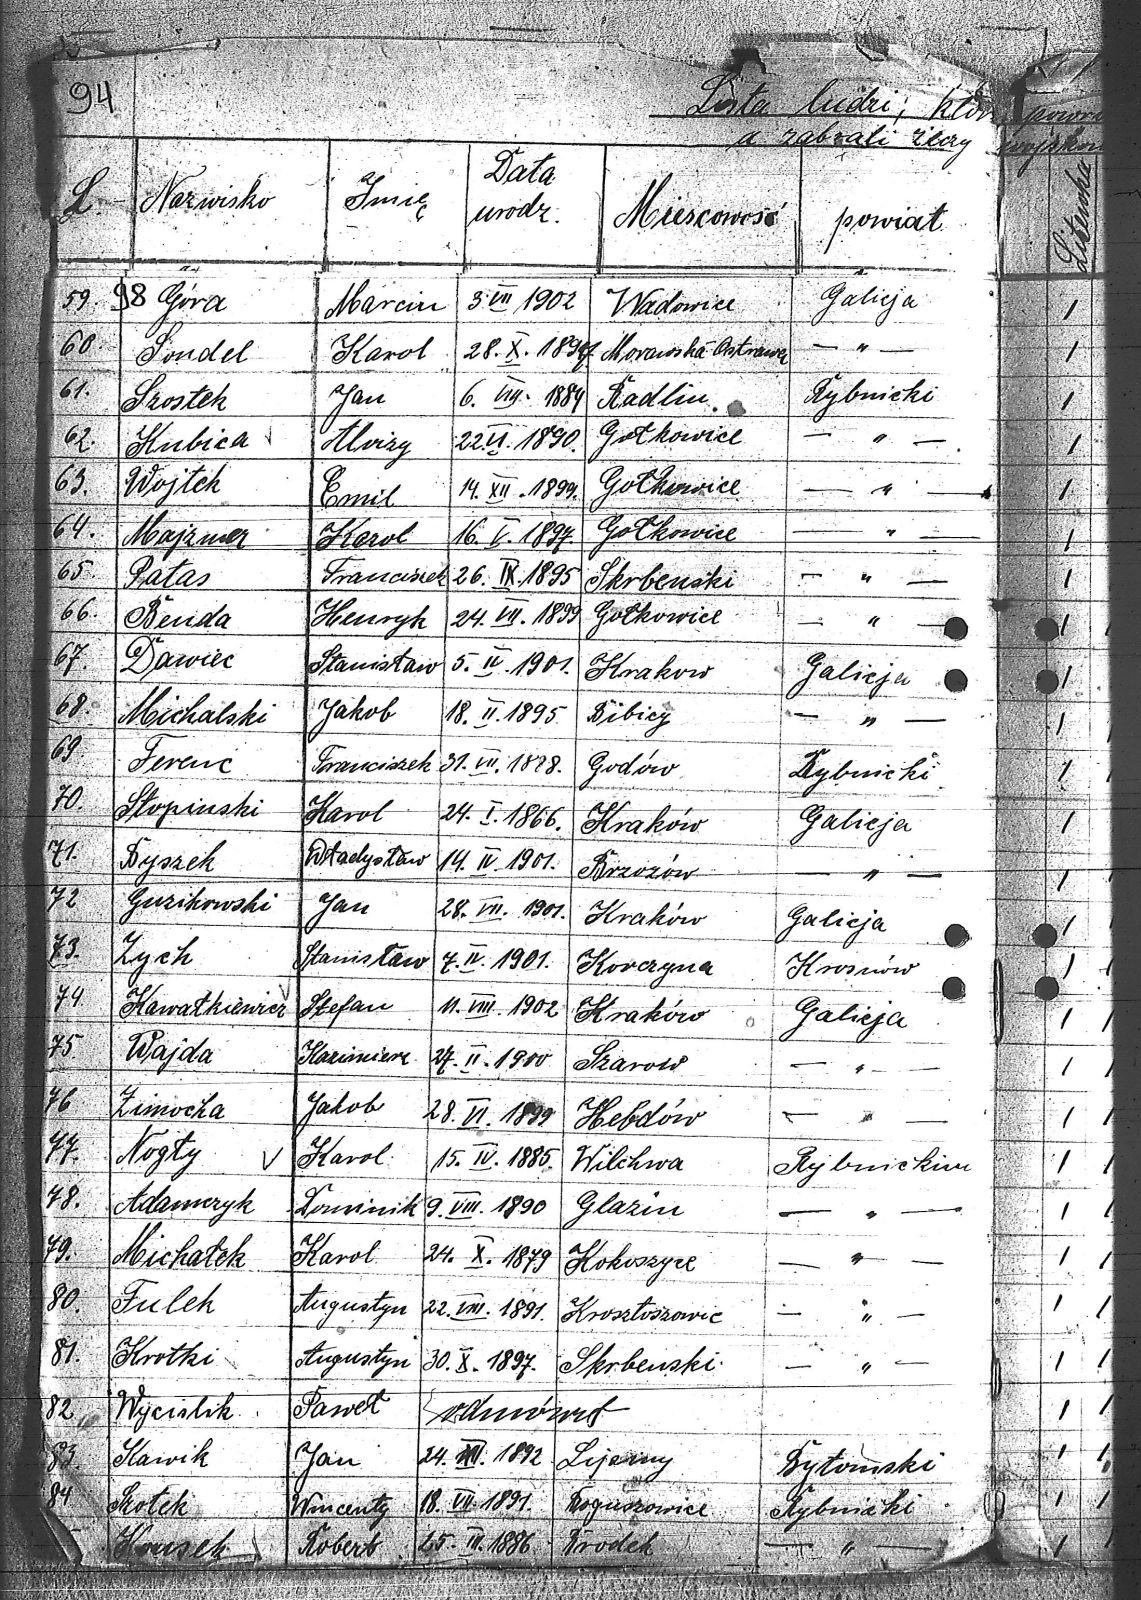 94
Lista ludzi, któr
a zabrali rzeczy wojskow
L. Nazwisko Imię Data urodz. Miescowość powiat Literska
59. 98 Góra Marcin 3 VII 1902 Wadowice Galicja
60. Sondel Karol 28. X. 1897 Morawska Ostrawa — " —
61. Szostek Jan 6. VIII. 1884 Radlin. Rybnicki
62. Kubica Aloizy 22. VI. 1890. Gołkowice — " —
63. Wojtek Emil 14. XII. 1899. Gołkowice — " —
64. Majzner Karol 16. V. 1897. Gołkowice — " —
65. Patas Franciszek 26. IX. 1895 Skrbenski — " —
66. Benda Henryk 24. VII. 1899 Gołkowice — " —
67. Dawiec Stanisław 5. IV. 1901. Krakow Galicja
68. Michalski Jakob 18. II. 1895. Bibicy — " —
69. Ferenc Franciszek 31. VII. 1888. Godów Rybnicki
70. Stopinski Karol 24. I. 1866. Kraków Galicja
71. Byszek Władysław 14. IV. 1901. Brzozów — " —
72 Guzikowski Jan 28. VII. 1901. Kraków Galicja
73. Zych Stanisław 7. IV. 1901. Korczyna Krosnów
74. Kawałkiewicz Stefan 11. VIII. 1902 Kraków Galicja
75. Wajda Kazimierz 27. II. 1900 Szarow — " —
76 Zimocha Jakob 28. VI. 1899 Hebdów — " —
77. Nogły Karol 15. IV. 1885. Wilchwa Rybnickim
78. Adamczyk Dominik 9. VIII. 1890 Glazin — " —
79. Michałek Karol 24. X. 1879 Kokoszyce — " —
80. Fulek Augustyn 22. VIII. 1891. Krosztoszowic — " —
81. Krotki Augustyn 30. X. 1897. Skrbenski — " —
82 Wycislik Paweł odmówił
83. Kawik Jan 24. XII. 1892 Lijany Bytomski
84 Skotek Wincenty 18. VII 1891. Boguszowice Rybnicki
Robert 25. III. 1886 Brodek — " —